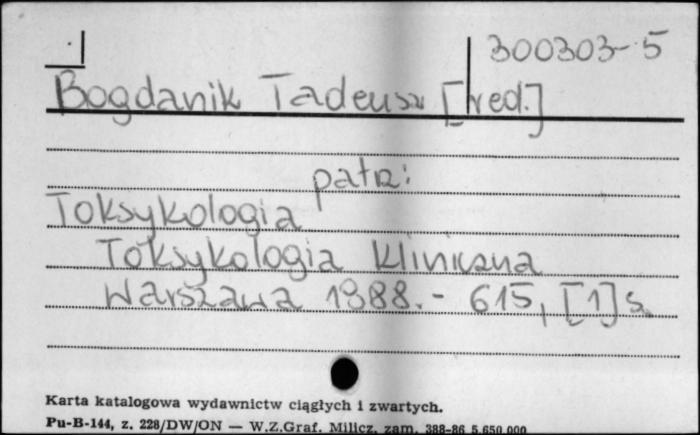 300303-5
Bogdanik Tadeusz [red.]
patrz:
Toksykologia
Toksykologia kliniczna
Warszawa 1988. - 615, [1] s.
Karta katalogowa wydawnictw ciągłych i zwartych.
Pu-B-144, z. 228/DW/ON — W.Z.Graf. Milicz, zam. 388-86 5.650.000